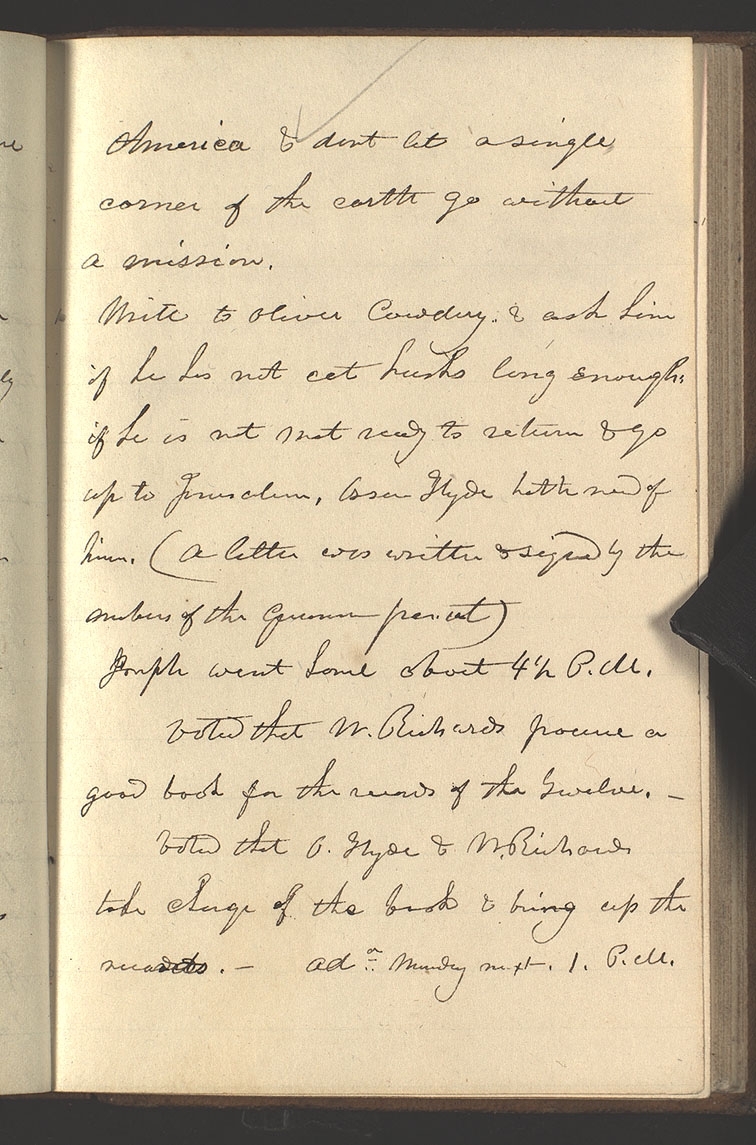 America & dont let a single
corner of the earth go without
a mission.
Write to Oliver Cowdery. & ask him
if he has not eat husks long enough.
if he is not not ready to return & go
up to Jerusalem, Orson Hyde hath need of
him. (a letter was written & signed by the
members of the Quorum present)
Joseph went home about 4½ P.M.
voted that W. Richards procure a
good book for the records of the Twelve. –
voted that O. Hyde & W. Richards
take charge of the book & bring up the
records. – adᵈ Monday next. 1. P.M.